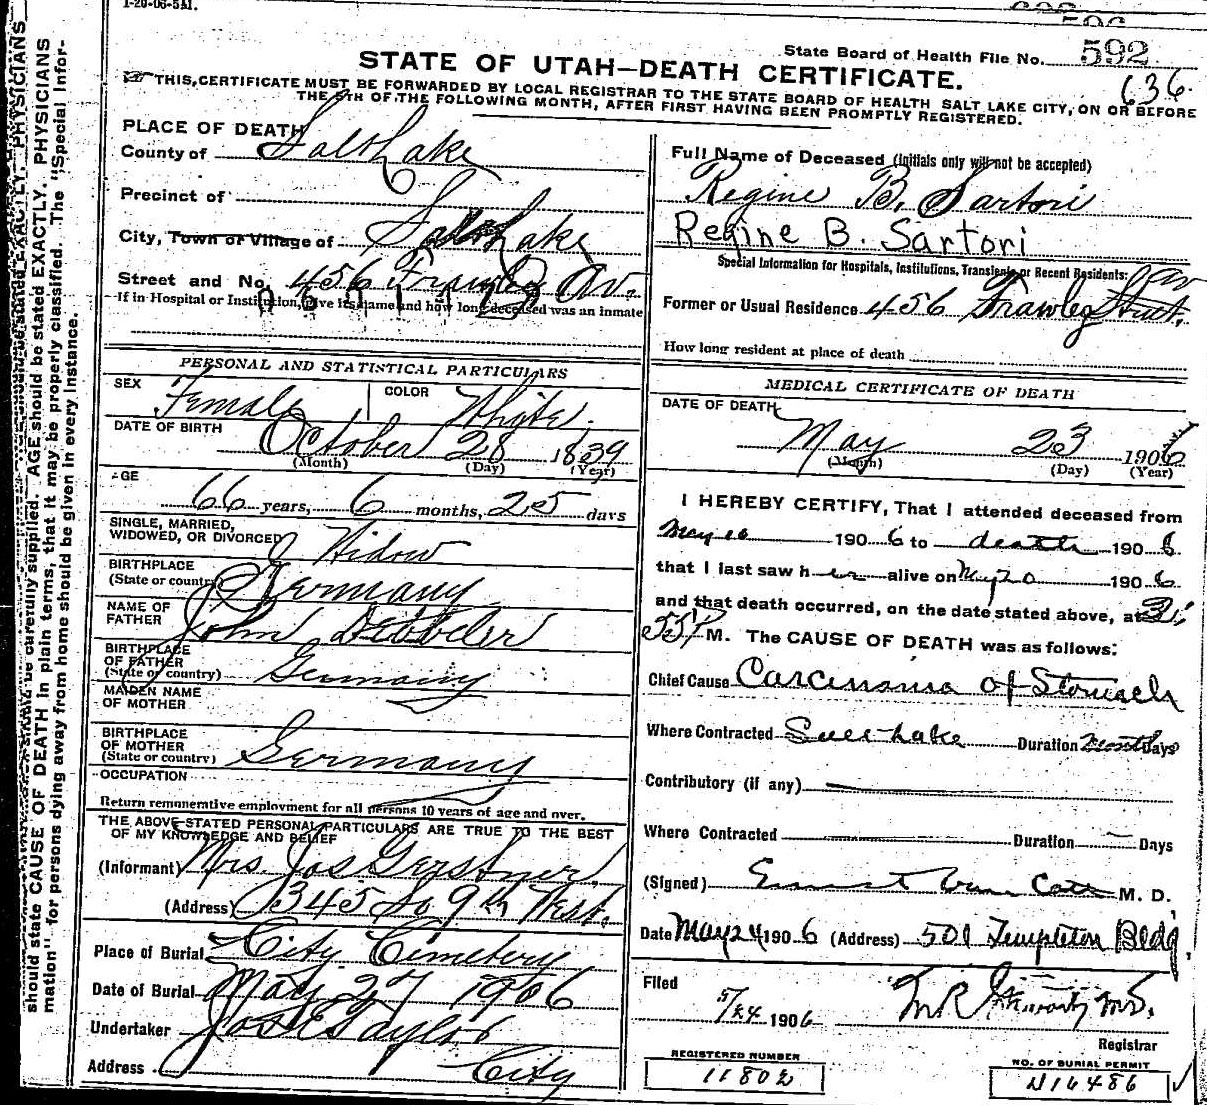 1-20-06-5M.
State Board of Health File No. 592
636
STATE OF UTAH—DEATH CERTIFICATE.
THIS CERTIFICATE MUST BE FORWARDED BY LOCAL REGISTRAR TO THE STATE BOARD OF HEALTH SALT LAKE CITY, ON OR BEFORE
THE 5TH OF THE FOLLOWING MONTH, AFTER FIRST HAVING BEEN PROMPTLY REGISTERED.
PLACE OF DEATH
County of Salt Lake
Precinct of
City, Town or Village of Salt Lake
Street and No. 456 Av.
If in Hospital or Institution, give its name and how long deceased was an inmate
PERSONAL AND STATISTICAL PARTICULARS
SEX Female COLOR White.
DATE OF BIRTH October 28 1839
(Month) (Day) (Year)
AGE
66 years, 6 months, 25 days
SINGLE, MARRIED,
WIDOWED, OR DIVORCED Widow
BIRTHPLACE
(State or country) Germany
NAME OF
FATHER John
BIRTHPLACE
OF FATHER
(State or country) Germany
MAIDEN NAME
OF MOTHER
BIRTHPLACE
OF MOTHER
(State or country) Germany
OCCUPATION
Return remunerative employment for all persons 10 years of age and over.
THE ABOVE STATED PERSONAL PARTICULARS ARE TRUE TO THE BEST
OF MY KNOWLEDGE AND BELIEF
(Informant) Mrs. Jos Gerstner.
(Address) 345 So 9th West.
Place of Burial City Cemetery
Date of Burial May 27 1906
Undertaker Jos E Taylor
Address City
Full Name of Deceased (Initials only will not be accepted)
Regine B. Sartori
Regine B. Sartori
Special Information for Hospitals, Institutions, Transients or Recent Residents:
Av
Former or Usual Residence 456 Frawley Street.
How long resident at place of death
MEDICAL CERTIFICATE OF DEATH
DATE OF DEATH
May 23 1906
(Month) (Day) (Year)
I HEREBY CERTIFY, That I attended deceased from
May 10 1906 to death 1906
that I last saw her alive on May 20 1906
and that death occurred, on the date stated above, at 3:
55 P M. The CAUSE OF DEATH was as follows:
Chief Cause Carcinoma of Stomach
Where Contracted Salt Lake Duration Months Days
Contributory (if any)
Where Contracted Duration Days
(Signed) Ernest Van Cott M. D.
Date May 24 1906 (Address) 501 Templeton Bldg.
Filed
5/24 1906
Registrar
REGISTERED NUMBER
11802
NO. OF BURIAL PERMIT
N16486
should state CAUSE OF DEATH in plain terms, that it may be properly classified. The "Special Infor-
mation" for persons dying away from home should be given in every instance.